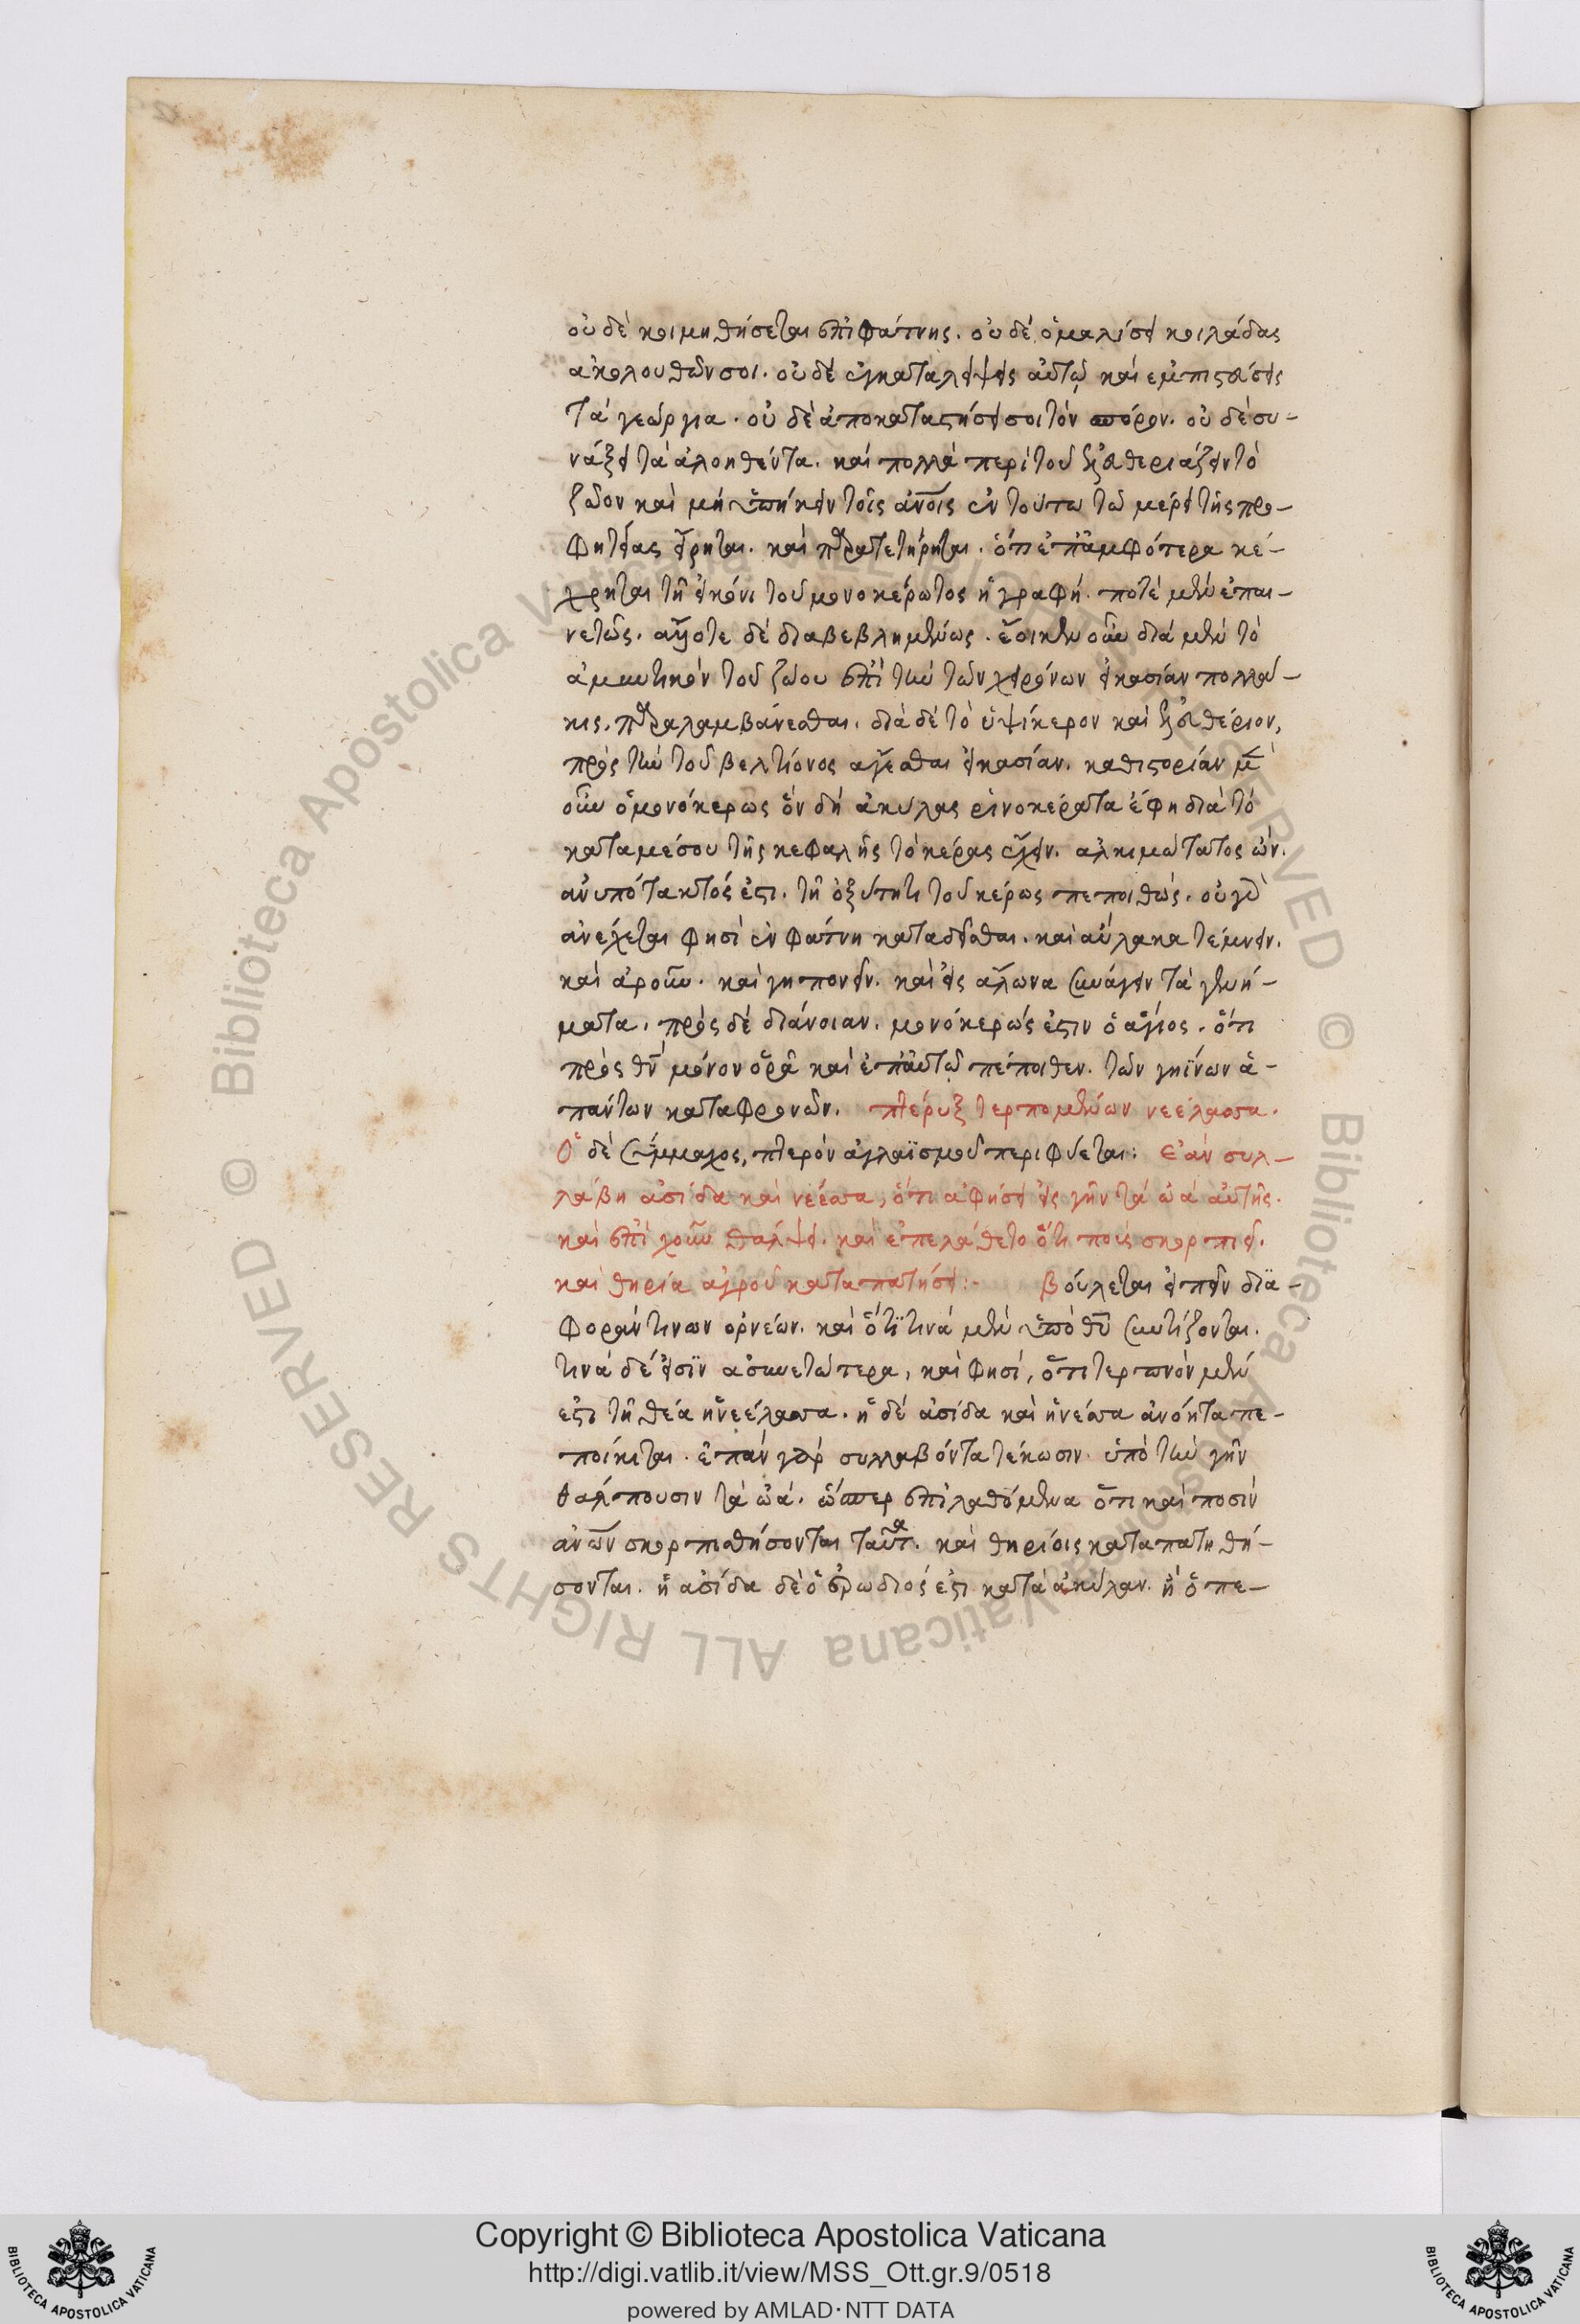 οὐδὲ κοιμηθήσεται ἐπὶ φάτνης. οὐδὲ ὁμαλίσει κοιλάδας
ἀκολουθῶν σοι. οὐδὲ ἐγκαταλείψεις αὐτῷ καὶ ἐμπιστεύσεις
τὰ γεώργια. οὐδὲ ἀποκαταστήσει σοι τὸν σπόρον. οὐδὲ συ-
νάξει τὰ ἀλοηθέντα. καὶ πολλὰ περὶ τοῦ ἐλευθεριάζειν τὸ
ζῶον καὶ μὴ ὑπήκειν τοῖς ἀνοις ἐν τούτω τῶ μέρει τῆς προ-
φητείας εἴρηται. καὶ παρατετήρηται. ὅτι ἐπἀμφότερα κέ-
χρηται τῆ εἰκόνι τοῦ μονοκέρωτος ἡ γραφή. ποτὲ μὲν ἐπαι-
νετῶς. ἄλλοτε δὲ διαβεβλημένως. ἔοικεν οὖν διὰ μὲν τὸ
ἀμυντικὸν τοῦ ζώου ἐπὶ τὴν τῶν χειρόνων εἰκασίαν πολλά-
κις. παραλαμβάνεσθαι. διὰ δὲ τὸ ὑψίκερον καὶ ἐλευθέριον,
πρὸς τὴν τοῦ βελτίονος ἄγεσθαι εἰκασίαν. καθιστορίαν μὲν
οὖν ὁ μονόκερως ὃν δὴ ἀκύλας ῥινοκέρατα ἔφη διὰ τὸ
κατα μέσου τῆς κεφαλῆς τὸ κέρας ἔχειν. ἀλκιμώτατος ὤν.
ἀνυπότακτός ἐστι. τῆ ὀξύτητι τοῦ κέρως πεποιθώς. οὐ γὰρ
ἀνέχεται φησὶ ἐν φάτνη καταδεῖσθαι. καὶ αὔλακα τέμνειν.
καὶ ἀροῦν. καὶ γηπονεῖν. καὶ εἰς ἅλωνα συνάγειν τὰ γεννή-
ματα. πρὸς δὲ διάνοιαν. μονόκερώς ἐστιν ὁ ἅγιος. ὅτι
πρὸς θν μόνον ὁρᾶ καὶ ἐπαὐτῷ πέποιθεν. τῶν γηΐνων ἁ-
πάντων καταφρονῶν. πτέρυξ τερπομένων νεέλασσα.
Ὁ δὲ σύμμαχος, πτερὸν ἀγλαϊσμοῦ περιφύεται: Ἐὰν συλ-
λάβη ἀσίδα καὶ νέεσσα, ὅτι ἀφήσει εἰς γῆν τὰ ὠὰ αὐτῆς.
καὶ ἐπὶ χοῦν θάλψει. καὶ ἐπελάθετο ὅτι ποὺς σκορπιεῖ.
καὶ θηρία ἀγροῦ καταπατήσει:- βούλεται εἰπεῖν δια-
φορὰν τινων ὀρνέων. καὶ ὅτι τινὰ μὲν ὑπὸ θυ συνετίζονται.
τινὰ δέ εἰσιν ἀσυνετώτερα, καὶ φησί, ὅτι τερπνὸν μὲν
ἐστι τῆ θέα ἡ νεέλασσα. ἡ δὲ ἀσίδα καὶ ἡ νέεσσα ἀνόητα πε-
ποίηται. ἐπὰν γὰρ συλλαβόντα τέκωσιν. ὑπὸ τὴν γῆν
θάλπουσιν τὰ ὠά. ὥσπερ ἐπιλαθόμενα ὅτι καὶ ποσὶν
ἀνων σκορπισθήσονται ταῦτα. καὶ θηρίοις καταπατηθή-
σονται. ἡ ἀσίδα δὲ ὁ ἐρωδιός ἐστι κατὰ ἀκύλαν. ἢ ὁ πε-
Copyright © Biblioteca Apostolica Vaticana
http://digi.vatlib.it/view/MSS_Ott.gr.9/0518
powered by AMLAD·NTT DATA
BIBLIOTECA APOSTOLICA VATICANA
BIBLIOTECA APOSTOLICA VATICANA
© Biblioteca Apostolica Vaticana ALL RIGHTS RESERVED © Biblioteca Apostolica Vaticana ALL RIGHTS RESERVED